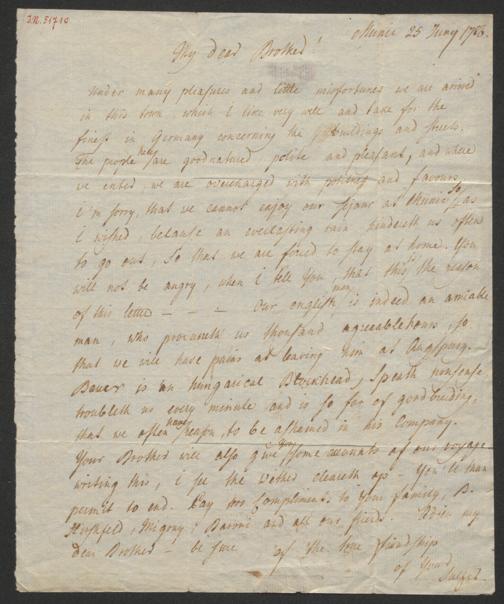 I.N. 31710
Munic 25 Juny 1786.
My dear Brother!
Under many pleasures and little misfortunes we are arrived
in this town, which I like very well and take for the
finest in Germany concerning the buildings and streets.
The people here are goodnatured polite and pleasant, and where
we enter, we are overcharged with and favours.
I'm sorry, that we cannot enjoy our at Munic so, as
I wished, because an everlasting rain hindreth us often
to go out, so that we are forced to stay at home. You
will not be angry, when I tell you, that this is the reason
of this letter – – – Our englishman is indeed an amiable
man, who procureth us thousand agreeable hours, so
that we will have pains at leaving him at Augspurg.
Bauer is an hungarical Blockhead, Speath nonsense
troubleth us every minute and is so far of good breeding,
that we often have reason, to be ashamed in his Company.
Your Brother will also give you some accounts of our voyage
writing this, I see the wether cleareth up – You'll than
permit to end. Pay my Compliments to your family, B.
Hochfeld, Baroni and all our friends. Adieu my
dear Brother – be sure of the true friendship
of your